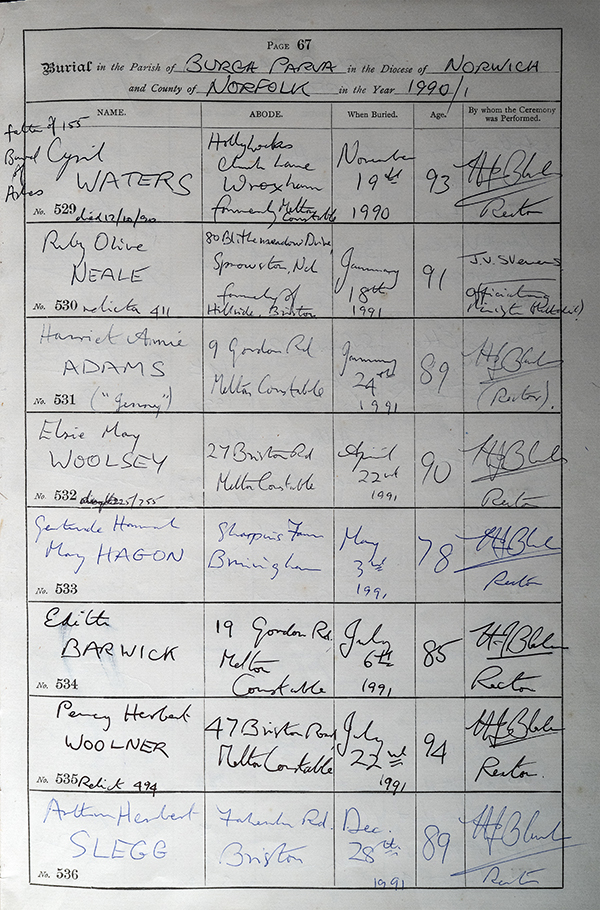 PAGE 67
Burial in the Parish of BURGH PARVA in the Diocese of NORWICH
and County of NORFOLK in the Year 1990/1
NAME. ABODE. When Buried. Age. By whom the Ceremony was Performed.
of 155
Burial of Ashes
Cyril
WATERS
No. 529 died 12/10/90
Hollyhocks
Church Lane
Wroxham
formerly Melton Constable
November
19th
1990
93
Rector
Ruby Olive
NEALE
No. 530 relict 411
80 Blithemeadow Drive
Sprowston, Nch
formerly of
Hillside, Briston
January
18th
1991
91
J.V. Stevens
Officiating
Harriet Annie
ADAMS
No. 531 ("Jenny")
9 Gordon Rd
Melton Constable
January
24th
1991
89
(Rector).
Elsie May
WOOLSEY
No. 532
27 Briston Rd
Melton Constable
April
22nd
1991
90
Rector
Gertrude Hannah
May HAGON
No. 533
Sharpins Farm
Briningham
May
3rd
1991
78
Rector
Edith
BARWICK
No. 534
19 Gordon Rd.
Melton
Constable
July
6th
1991
85
Rector
Percy Herbert
WOOLNER
No. 535 Relict 494
47 Briston Road
Melton Constable
July
22nd
1991
94
Rector.
Arthur Herbert
SLEGG
No. 536
Fakenham Rd.
Briston
Dec.
28th
1991
89
Rector